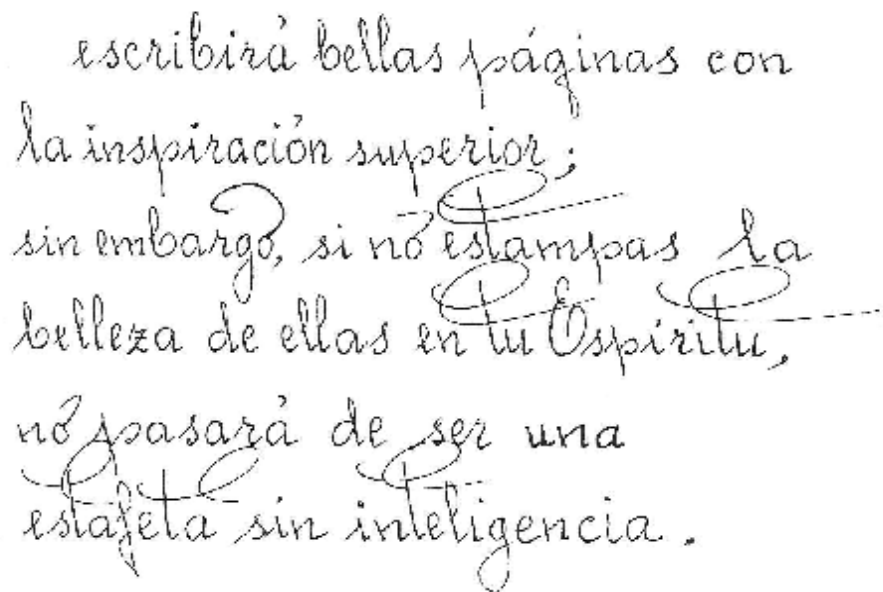 escribirá bellas páginas con
la inspiración superior;
sin embargo, si nó estampas la
belleza de ellas en tu Espíritu,
nó pasará de ser una
estafeta sin inteligencia.